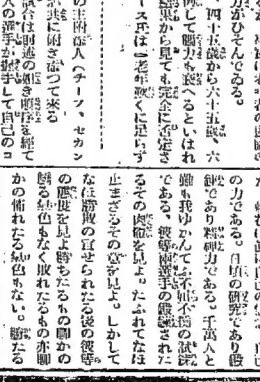 力がひそんでゐる。
四十五歳から六十五歳、六
例して腦力も衰へるといはれ
結果から見ても完全に否定さ
ース氏は「老年歎くに足らず
の主附添人（チーフ、セカン
に附き添つて來る
試合は前述の如き順序を經て
人の選手が握手して自己のコ
の力である。日頃の研究であり鍛
錬であり精神力である。千萬人と
雖も我ゆかんてふ不如不倒の
である。彼等兩選手の鍛錬された
るその肉體を見よ。たふれてなほ
止まざるその意を見よ。しかして
なほ勝敗の宣せられたる後の彼等
の態度を見よ勝ちたるもの聊かの
驕る色もなく敗れたるもの亦聊
かの怖れたる色もない。勝たる